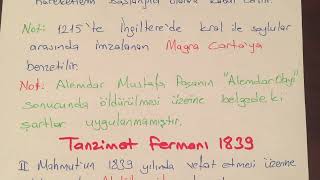 hareketlerin başlangıcı olarak kabul edilir.
Not: 1215'te İngiltere'de kral ile soylular
arasında imzalanan Magna Carta'ya
benzetilir.
Not: Alemdar Mustafa Paşanın "Alemdar Olayı"
sonucunda öldürülmesi üzerine belgede ki
şartlar uygulanmamıştır.
Tanzimat Fermanı 1839
II Mahmut'un 1839 yılında vefat etmesi üzerine